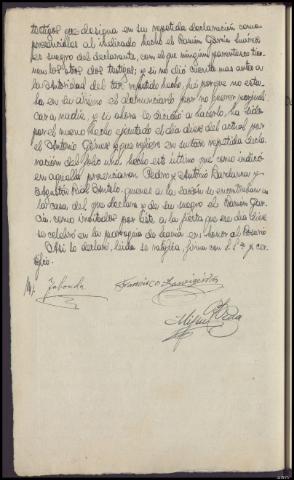 testigos que designa en su repetida declaración como
presenciales al indicado hecho el Ramón García
suegro del declarante, con el que ningún parentesco tie-
nen los otros dos testigos; y si no dió cuenta mas antes a
la Autoridad del repetido hecho, fué por que no esta-
ba en su ánimo el denunciarlo por no querer perjudi-
car a nadie, y si ahora lo decidió a hacerlo, ha sido
por el nuevo hecho ejecutado el día doce del actual por
el Antonio Gómez que refiere en su tan repetida decla-
ración del folio uno, hecho este último que como indicó
en aquella presenciaron Pedro y Antonio
y Agustín quienes a la sazón se encontraban en
la casa del que declara y de su suegro el Ramón Gar-
cía, como invitados por éste a la fiesta que ese día doce
se celebró en la parroquia de en honor al Rosario
Así lo declaró, leída se ratifica, firma con S. Sª y cer-
tifico.
Taboada Francisco
Miguel